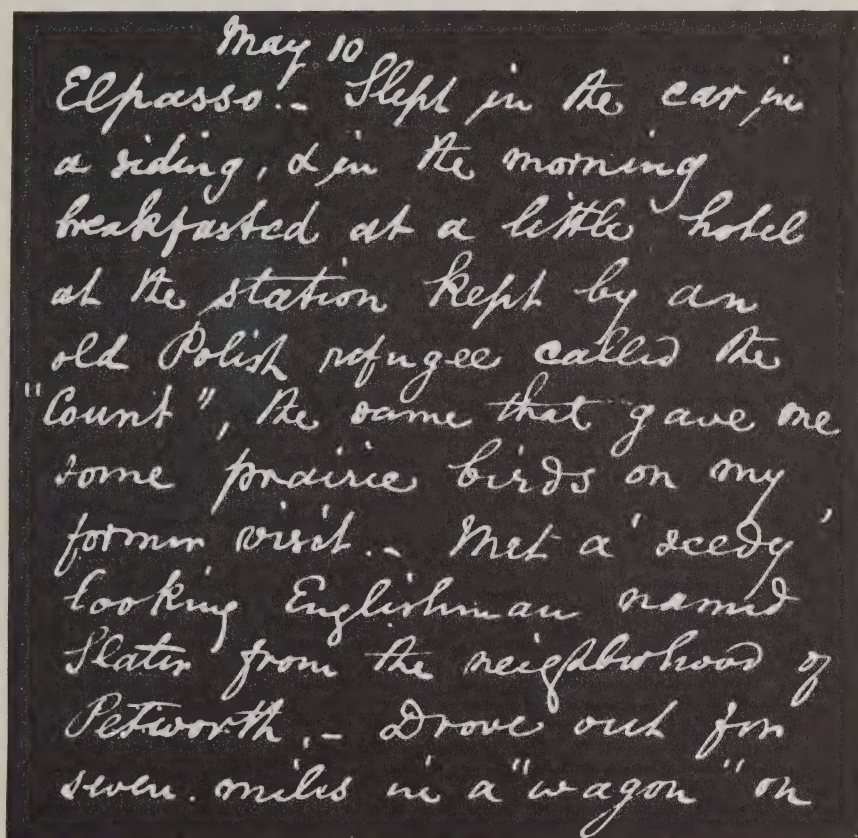 May 10
Elpasso. - Slept in the car in
a siding, & in the morning
breakfasted at a little hotel
at the station kept by an
old Polish refugee called the
"Count", the same that gave me
some prairie birds on my
former visit. - Met a 'seedy'
looking Englishman named
Slater from the neighborhood of
Petworth, - Drove out for
seven miles in a "wagon" on